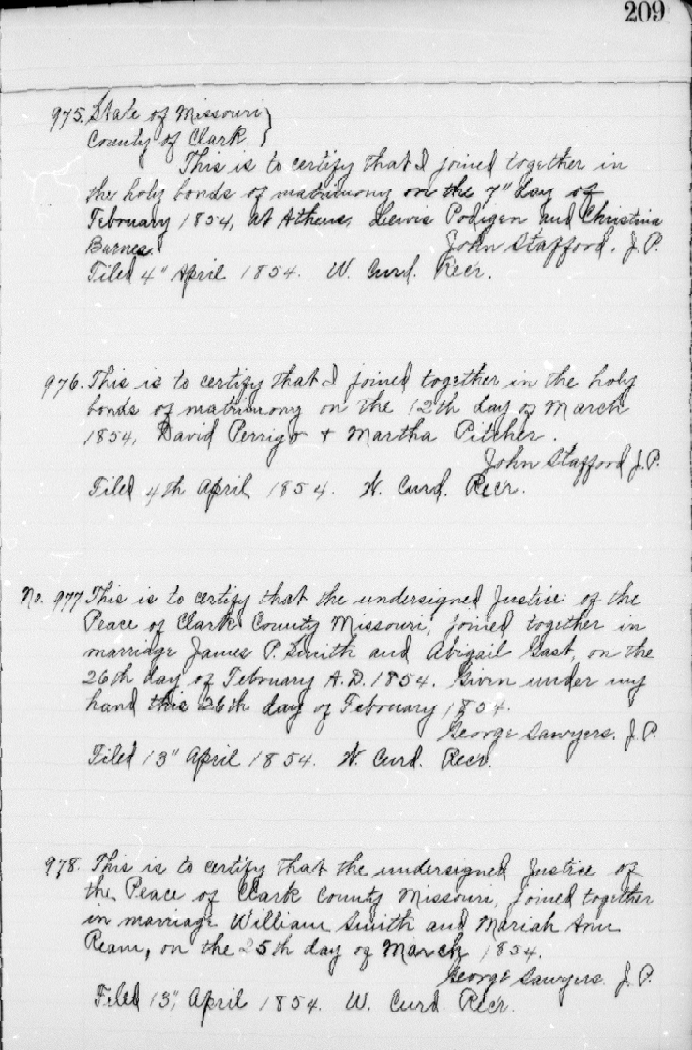 209
975. State of Missouri }
County of Clark }
This is to certify that I joined together in
the holy bonds of matrimony on the 7" day of
February 1854, at Athens, Lewis Podigon and Christina
Barnes. John Stafford. J.P.
Filed 4" April 1854. W. Curd. Rec'r.
976. This is to certify that I joined together in the holy
bonds of matrimony on the 12th day of March
1854, David Perrigo + Martha Pitcher.
John Stafford J.P.
Filed 4th April 1854. W. Curd. Rec'r.
No. 977 This is to certify that the undersigned Justice of the
Peace of Clark County Missouri, joined together in
marriage James P. Smith and Abigail Gast, on the
26th day of February A.D. 1854. Given under my
hand this 26th day of February 1854.
George Sawyers. J.P.
Filed 13" April 1854. W. Curd. Rec'r.
978. This is to certify that the undersigned Justice of
the Peace of Clark County Missouri, joined together
in marriage William Smith and Mariah Ann
Ream, on the 25th day of March 1854.
George Sawyers. J.P.
Filed 13", April 1854. W. Curd Rec'r.